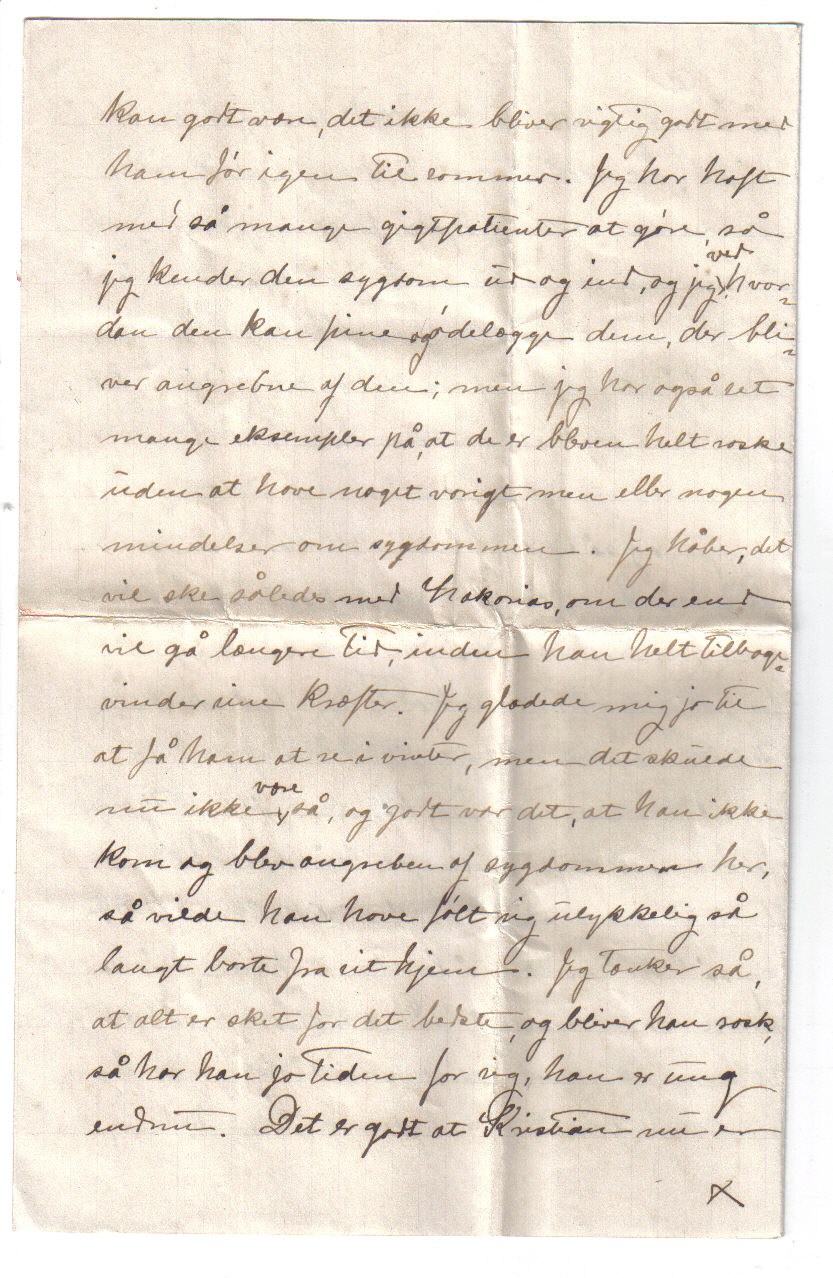 kan godt være, det ikke bliver rigtig godt med
ham før igen til sommer. Jeg har haft
med så mange gigtpatienter at gøre, så
jeg kender den sygdom ud og ind, og jeg ved hvor-
dan den kan pine og ødelægge dem, der bli-
ver angrebne af den; men jeg har også set
mange eksempler på, at de er bleven helt raske
uden at have noget varigt men eller nogen
mindelser om sygdommen. Jeg håber, det
vil ske således med Zakarias, om der end
vil gå længere tid, inden han helt tilbage-
vinder sine kræfter. Jeg glædede mig jo til
at få ham at se i vinter, men det skulde
nu ikke være så, og godt var det, at han ikke
kom og blev angreben af sygdommen her,
så vilde han have følt sig ulykkelig så
langt borte fra sit hjem. Jeg tænker så,
at alt er sket for det bedste, og bliver han rask,
så har han jo tiden for sig, han er ung
endnu. Det er godt at Kristian nu er
x